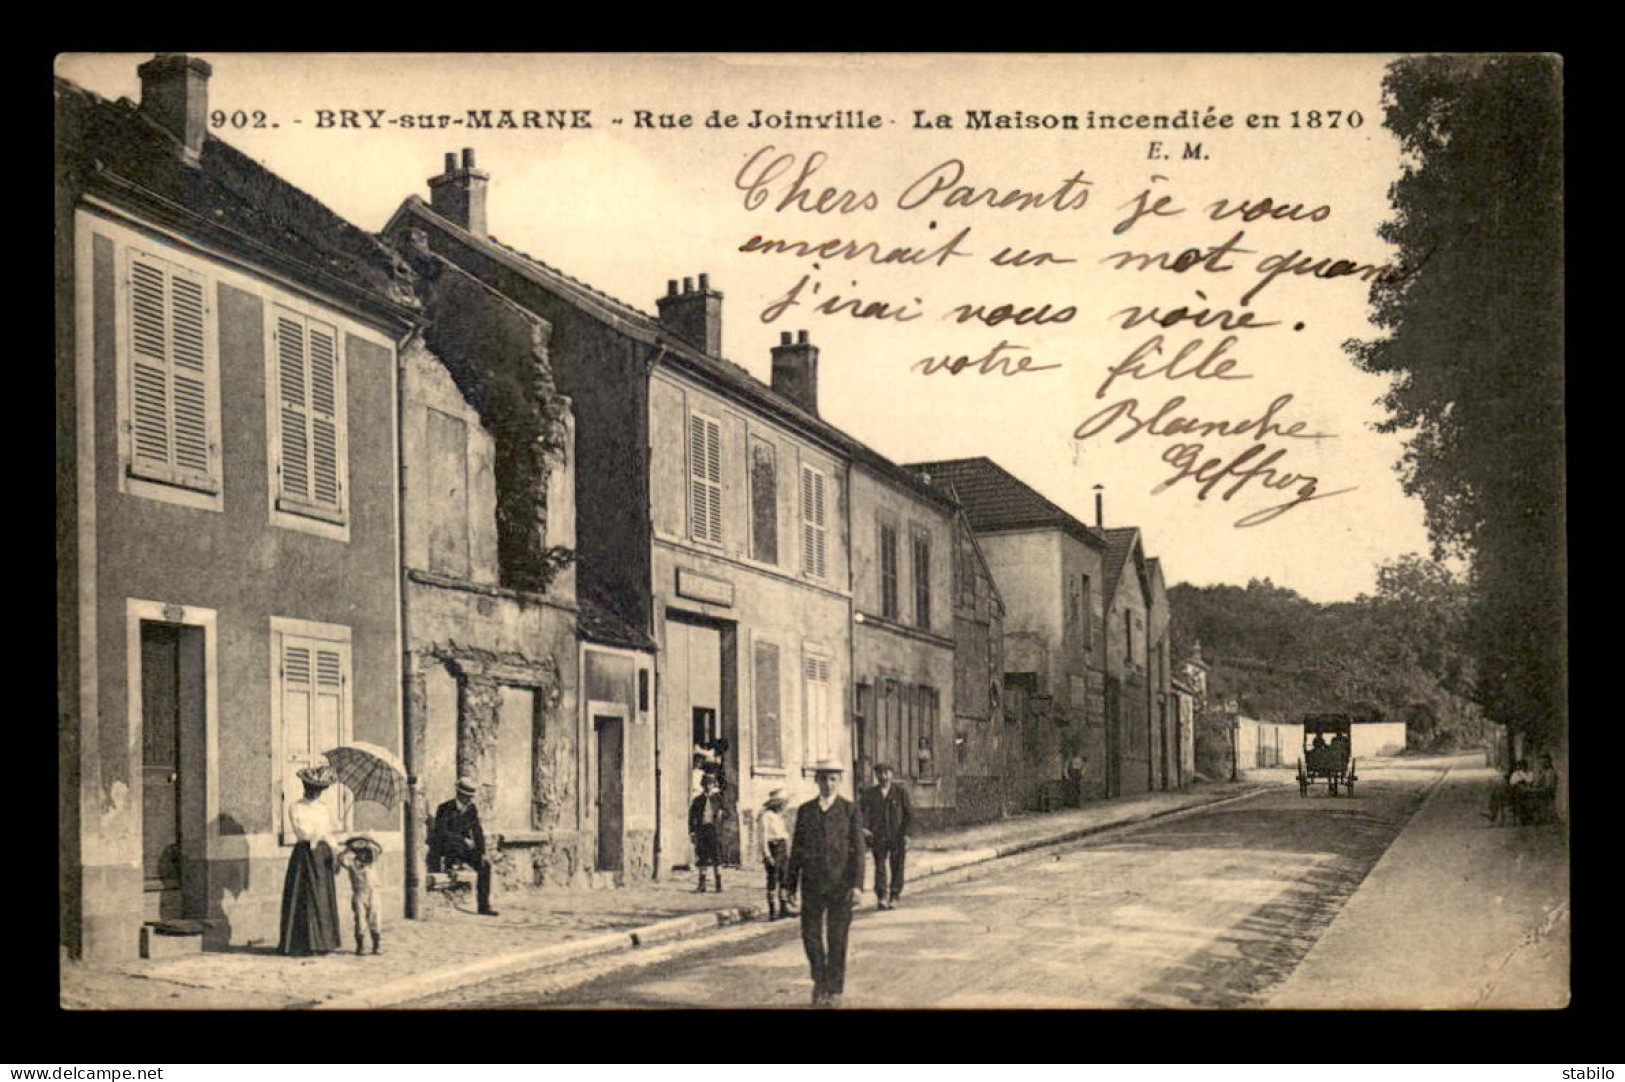 902. - BRY-sur-MARNE - Rue de Joinville - La Maison incendiée en 1870
E. M.
Chers Parents je vous
enverrait un mot quand
j'irai vous voire.
votre fille
Blanche
Geffroy
www.delcampe.net
stabilo